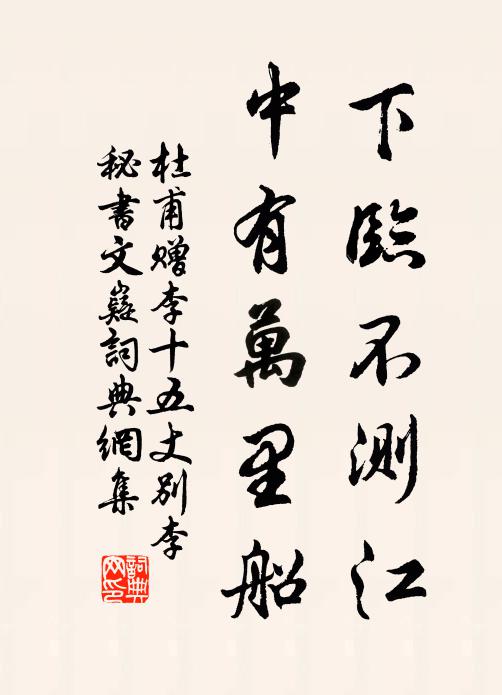 下臨不測江
中有萬里船
杜甫贈李十五丈別李
秘書文嶷詞典網集
詞典网印